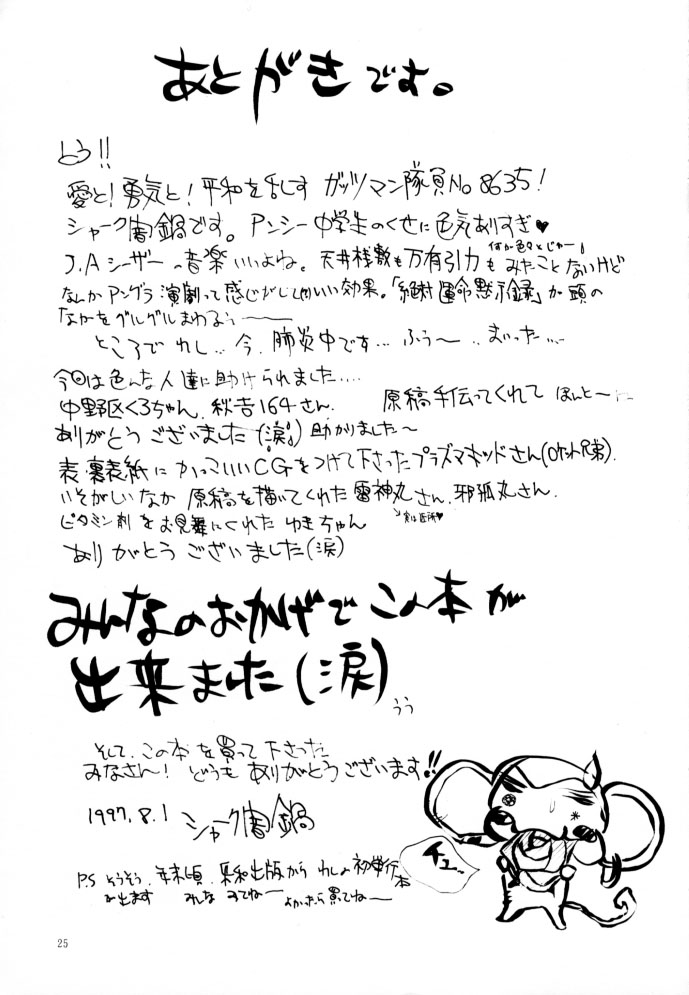 あとがきです。
とう!!
愛と!勇気と!平和を乱しす ガッツマン隊員No 8635!
シャーク闇鍋です。アンシー中学生のくせに色気ありすぎ♥
J.Aシーザーの音楽いいよね。天井桟敷も万有引力もみたことないけど
なんかアングラ演劇って感じがしていい効果。「絶対運命黙示録」が頭の
なかをグルグルまわるぅ〜
ところで わし… 今、肺炎中です… ふぅ〜 ‥まいった…
今回は色んな人達に助けられました‥‥
中野区くろちゃん、秋吉164さん 原稿手伝ってくれて ほんと〜に
ありがとうございました(涙) 助かりました〜
表・裏表紙にかっこいいCGをつけて下さったプラズマキッドさん(ロケット兄弟).
いそがしいなか 原稿を描いてくれた 雷神丸さん、邪狐丸さん
ビタミン剤をお見舞にくれた ゆきちゃん
ありがとうございました(涙)
みんなのおかげでこの本が
出来ました(涙)
うぅ
そして、この本を買って下さった
みなさん! どうもありがとうございます!!
1997.8.1 シャーク闇鍋
チュー…
P.S そうそう、年末頃、東和出版から わしの初単行本
を出ます みんな みてねー よかったら買てねー
25